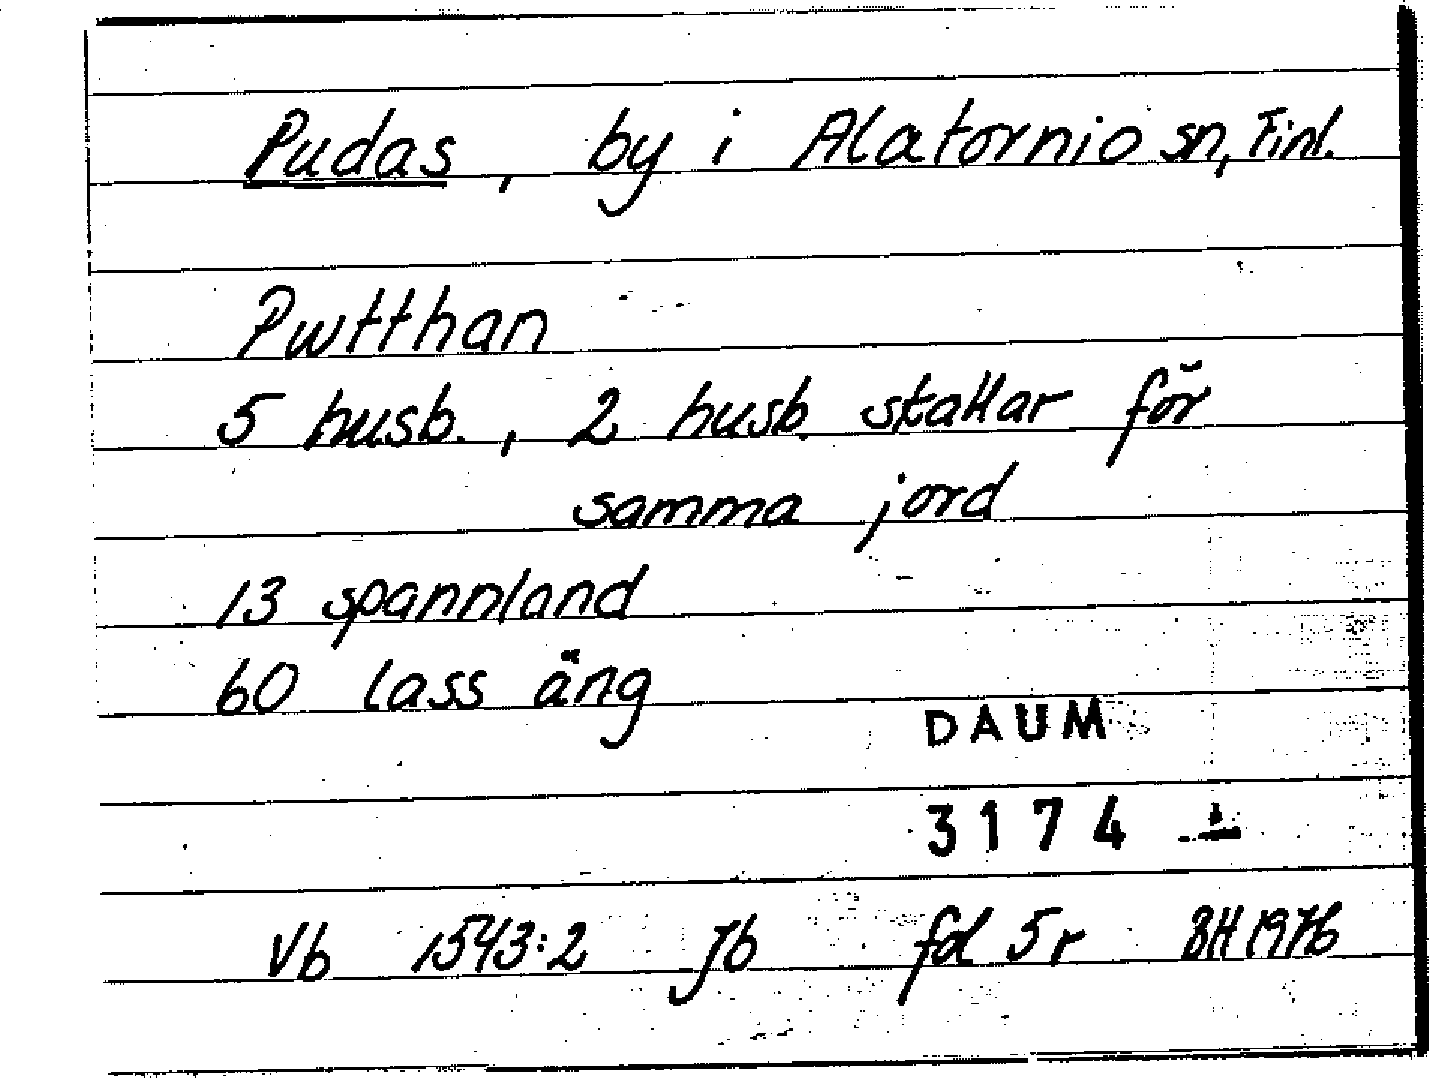 Pudas, by i Alatornio sn, Finl.
Pwtthan
5 husb., 2 husb. skattar för
samma jord
13 spannland
60 lass äng
DAUM
3174
Vb 1543:2 Jb fol 5r BH 1976